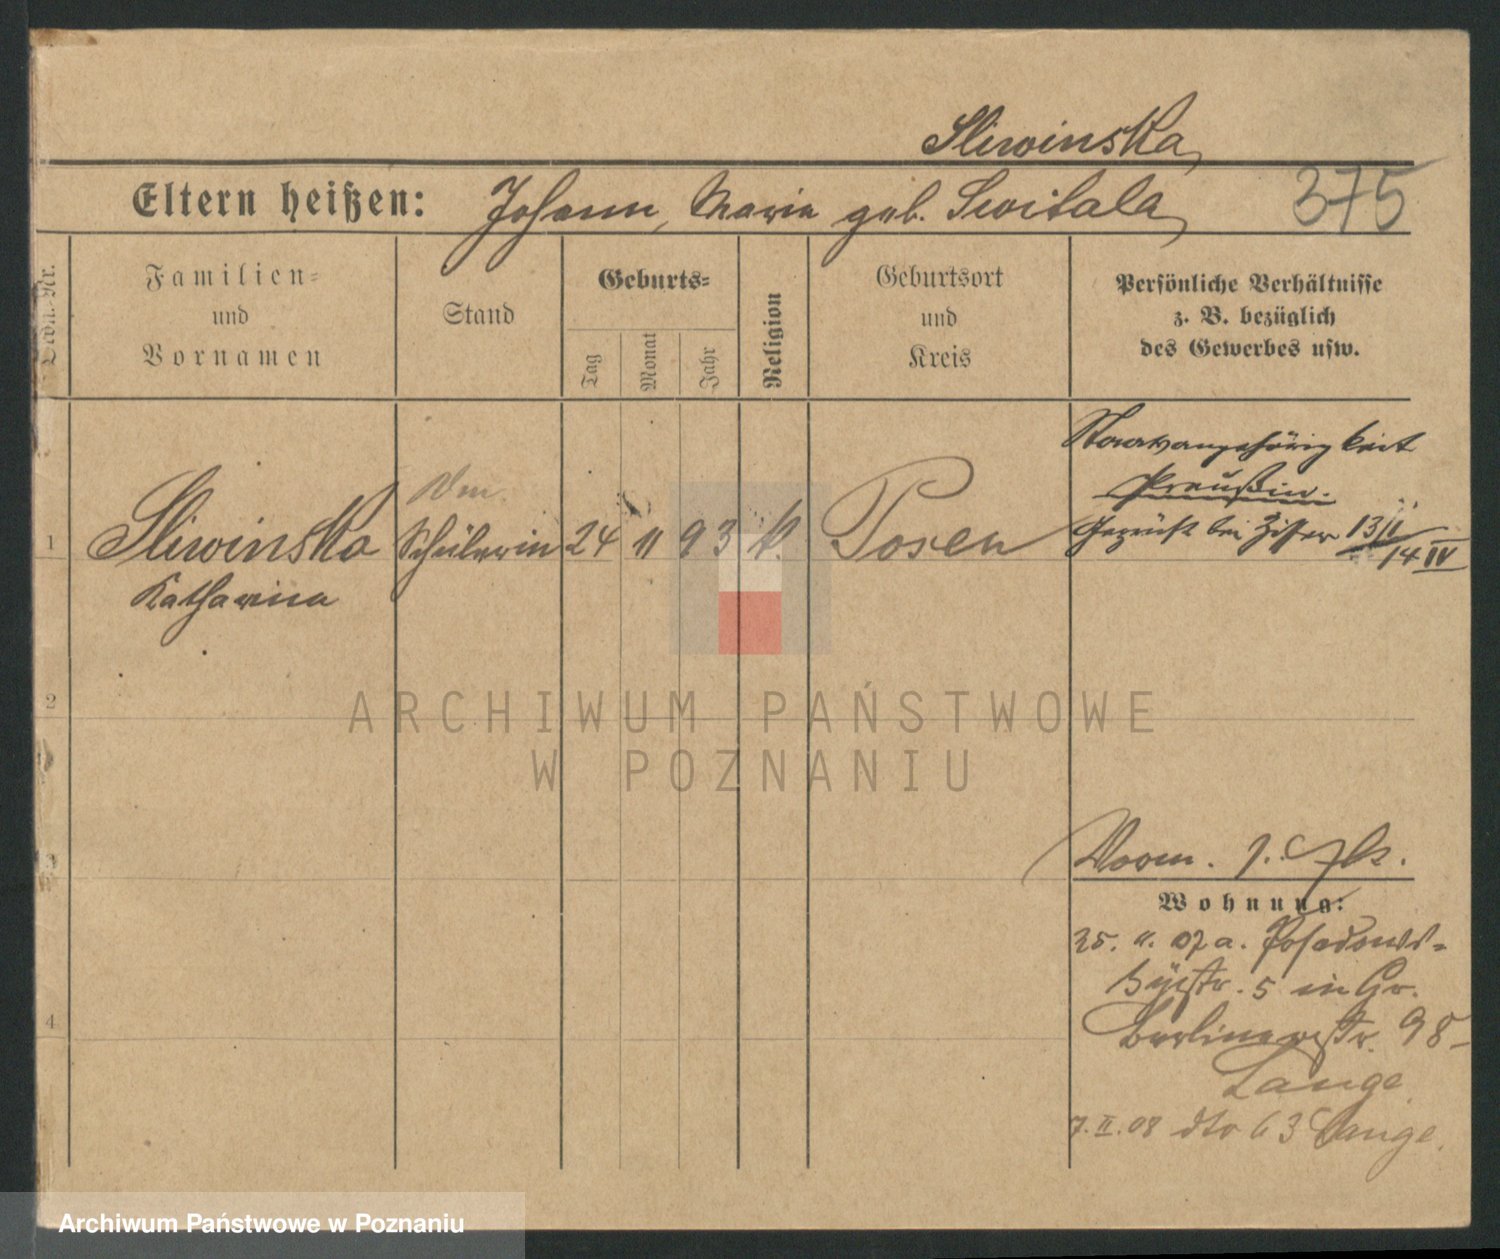 Sliwinska,
Eltern heißen: Johann, Maria geb. Switala, 375
Ldn.-Nr.
Familien- und Vornamen
Stand
Geburts-
Tag
Monat
Jahr
Religion
Geburtsort und Kreis
Persönliche Verhältnisse
z. B. bezüglich
des Gewerbes usw.
Staatsangehörigkeit
Preußin.
1 Sliwinska Schülerin 24 11 93 k. Posen
Katharina
geprüft bei Ziffer 13/1
14 IV
2
3
4
Wohnung:
25. 11. 07 a. Posadows-
kystr. 5 in Gr.
Berlinerstr. 98
Lange
7. II. 08 dto 63 Lange.
ARCHIWUM PAŃSTWOWE
W POZNANIU
Archiwum Państwowe w Poznaniu